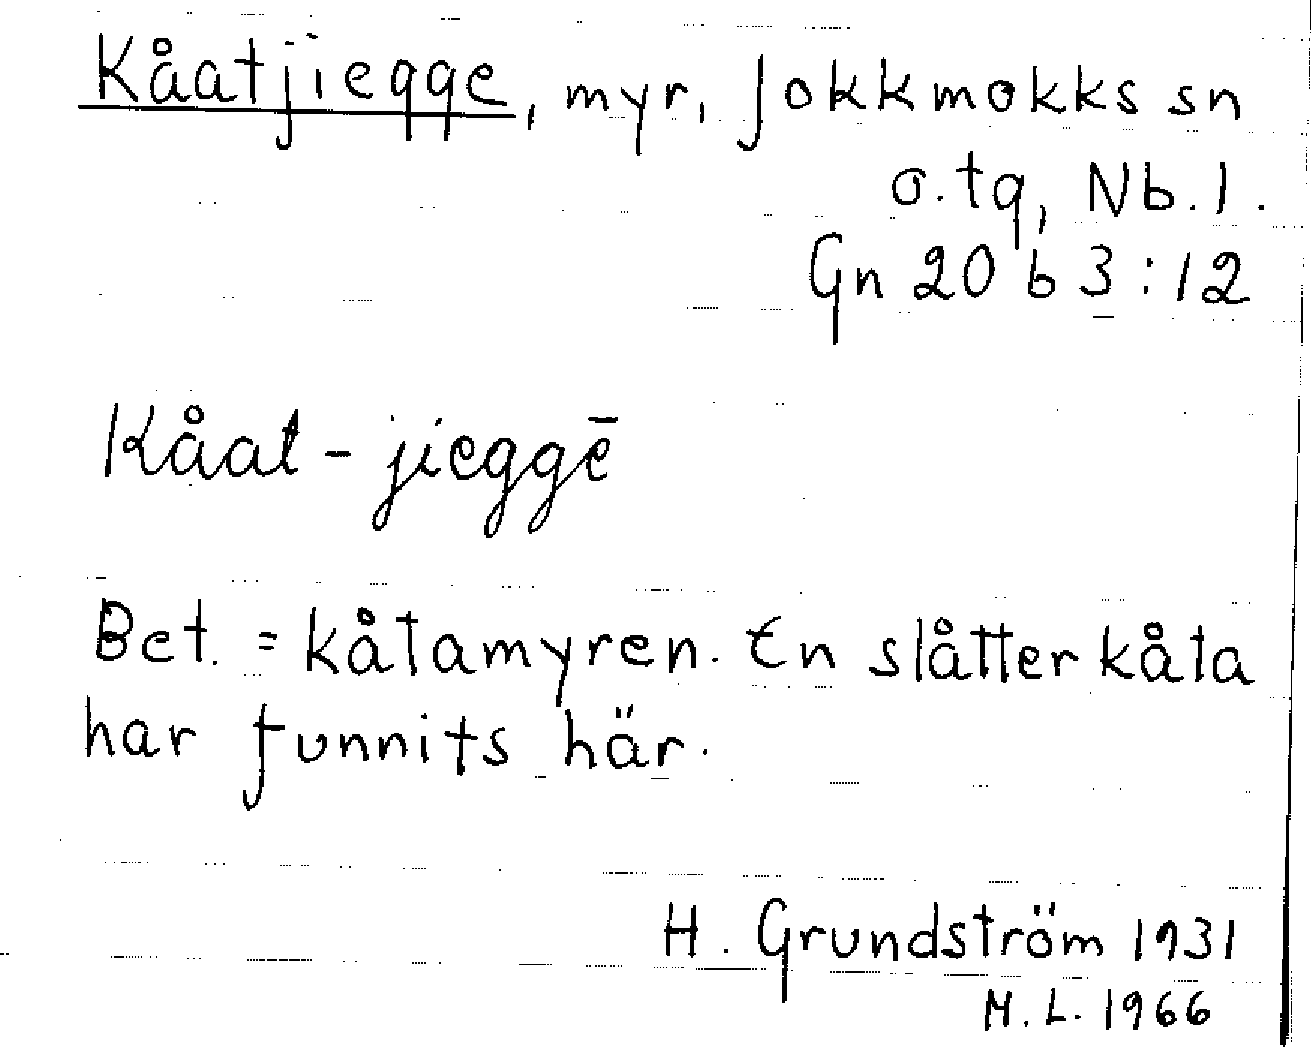 Kåatjiegge, myr, Jokkmokks sn
o. tg, Nb. l.
Gn 20 b 3:12
Kåat-jieggē
Bet. = kåtamyren. En slåtterkåta
har funnits här.
H. Grundström 1931
M. L. 1966